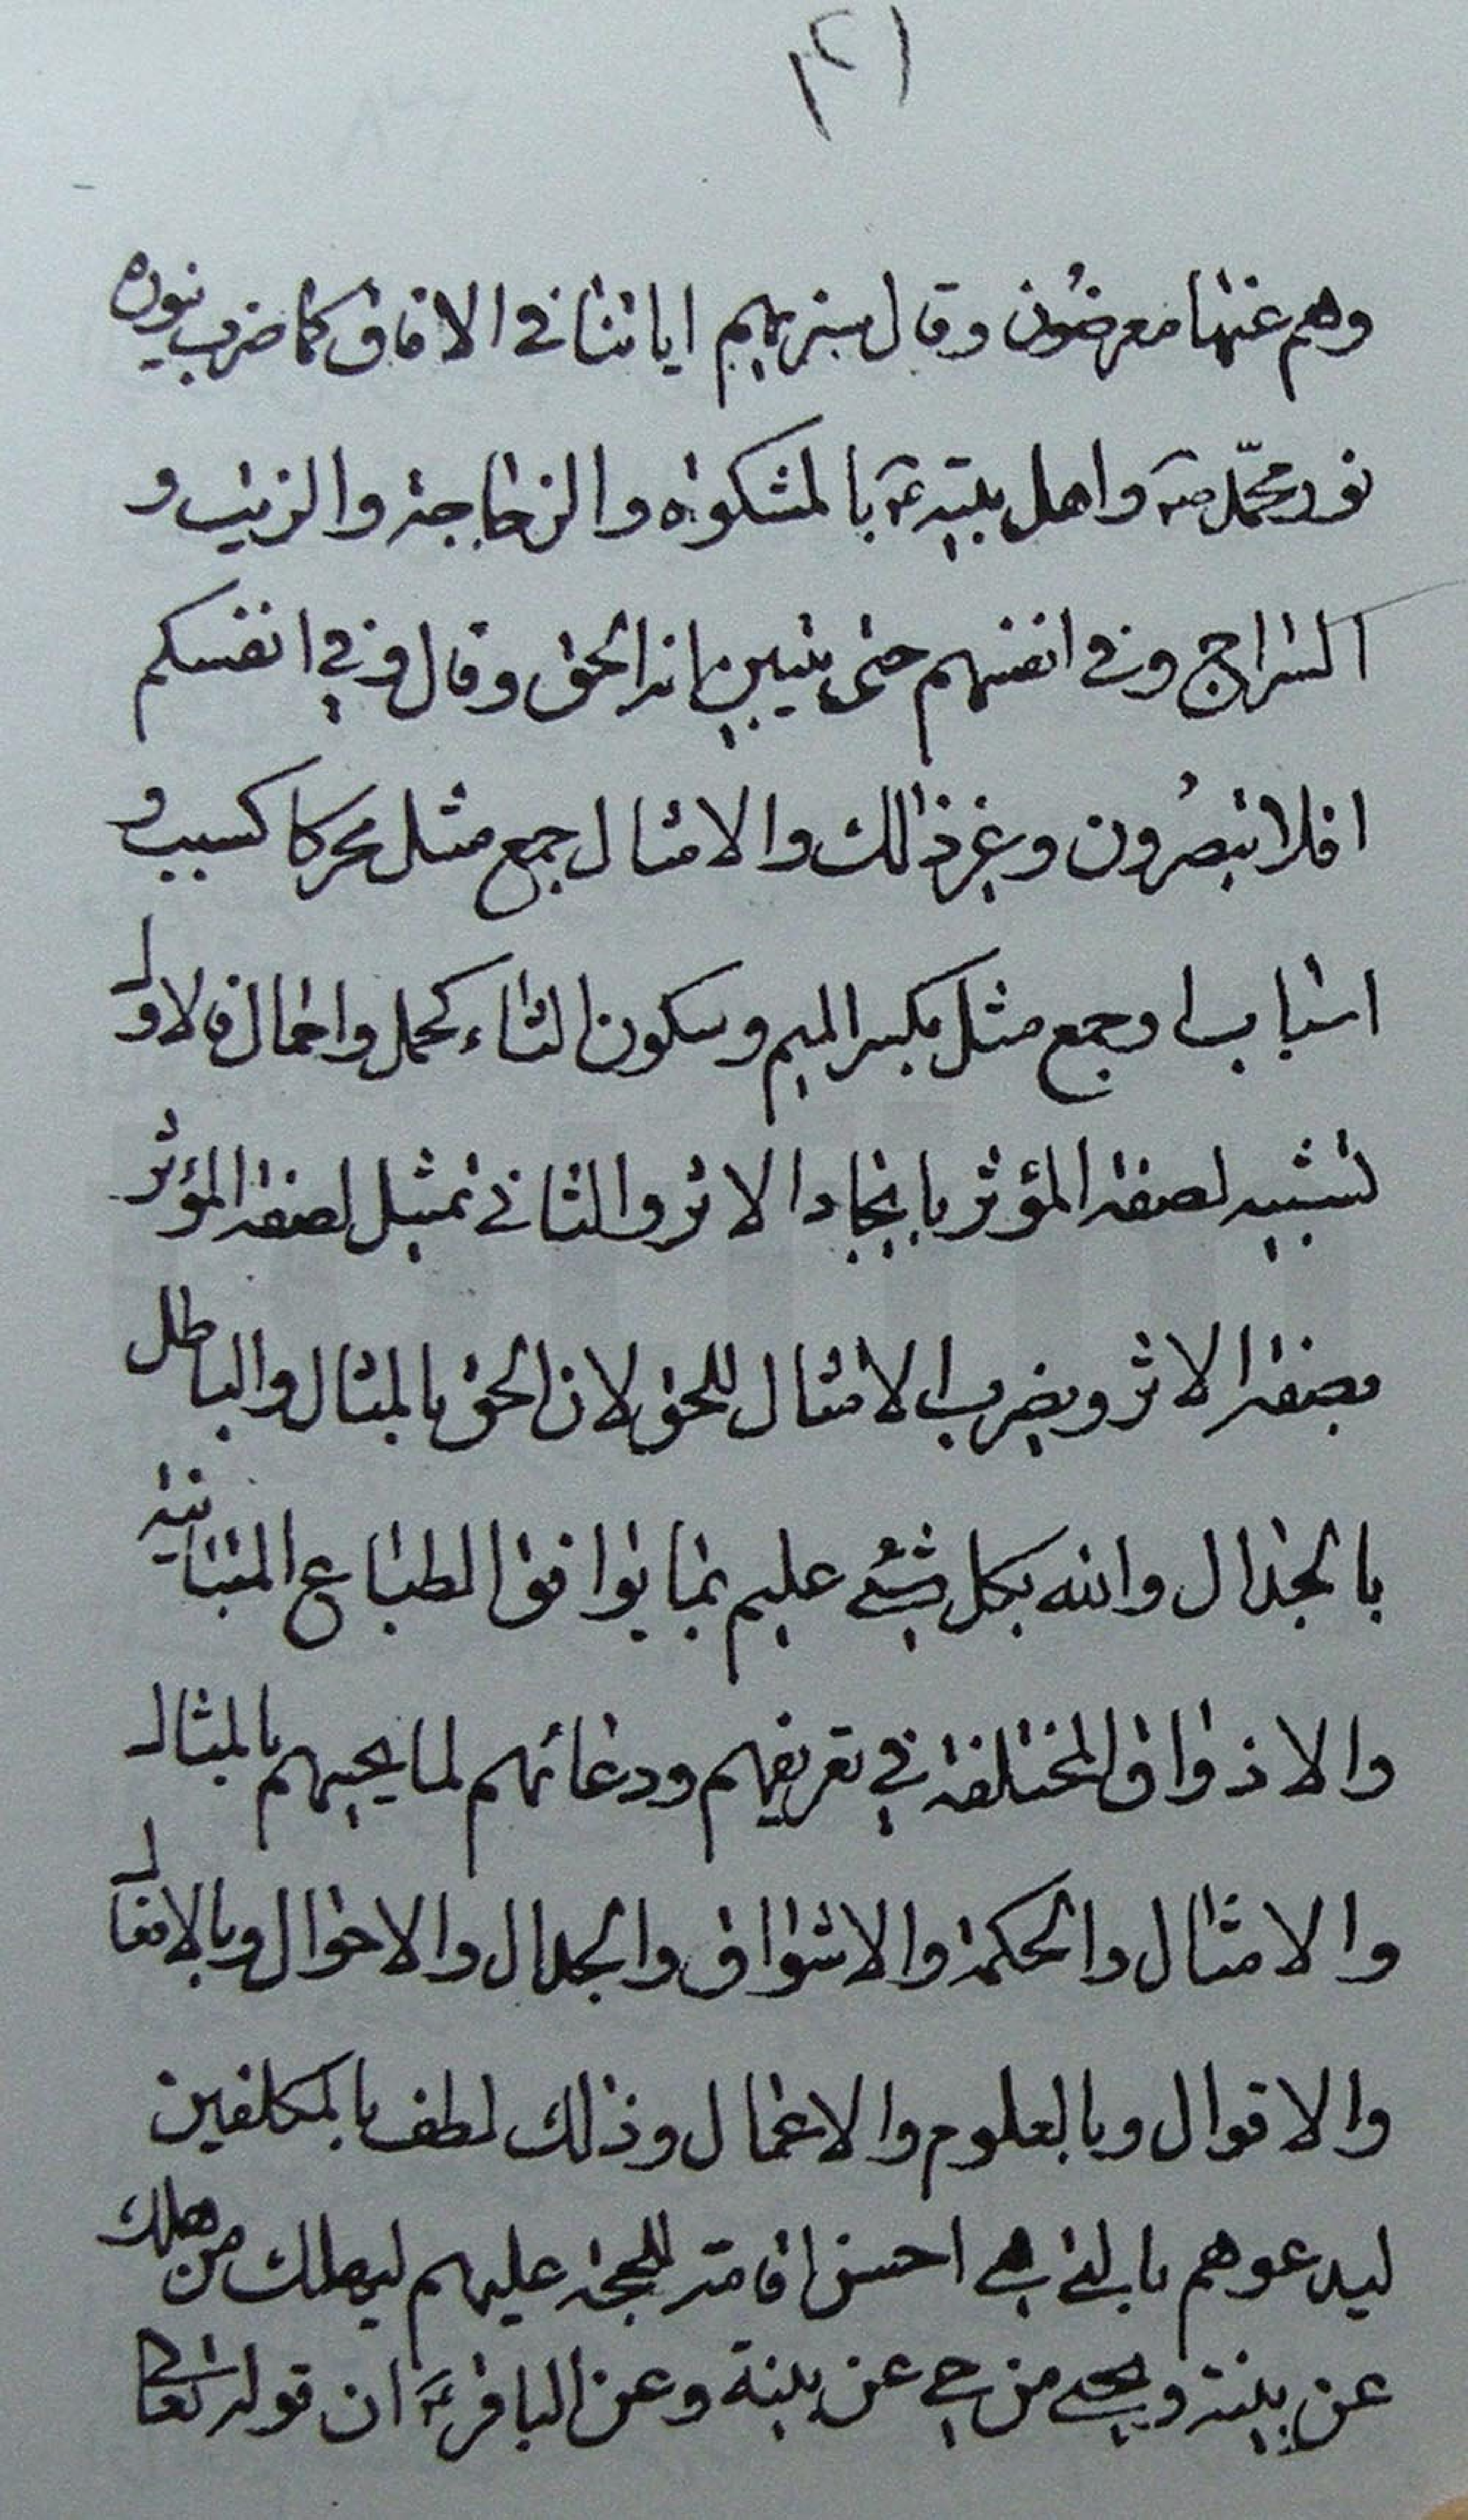 ٢١
وهم عنها معرضون وقال سنريهم اياتنا في الافاق كما ضرب نوره
نور محمّد صه واهل بيته عه بالمشكوة والزجاجة والزيت و
السراج وفي انفسهم حتى يتبين انه الحق وقال وفي انفسكم
افلا تبصرون وغير ذلك والامثال جمع مثل محركا كسبب و
اسباب او جمع مثل بكسر الميم وسكون الثاء كحمل واحمال فالاول
تشبيه لصفة المؤثر بايجاد الاثر والثاني تمثيل لصفة المؤثر
بصفة الاثر ويضرب الامثال للحق لان الحق بالمثال والباطل
بالجدال والله بكل شيء عليم بما يوافق الطباع المتباينة
والاذواق المختلفة في تعريفهم ودعائهم لما يحييهم بالمثال
والامثال والحكمة والاشواق والجدال والاحوال وبالافعال
والاقوال وبالعلوم والاعمال وذلك لطف بالمكلفين
ليدعوهم بالتي هي احسن اقامة للحجة عليهم ليهلك من هلك
عن بينة ويحيى من حي عن بينة وعن الباقر عه ان قوله تعالى